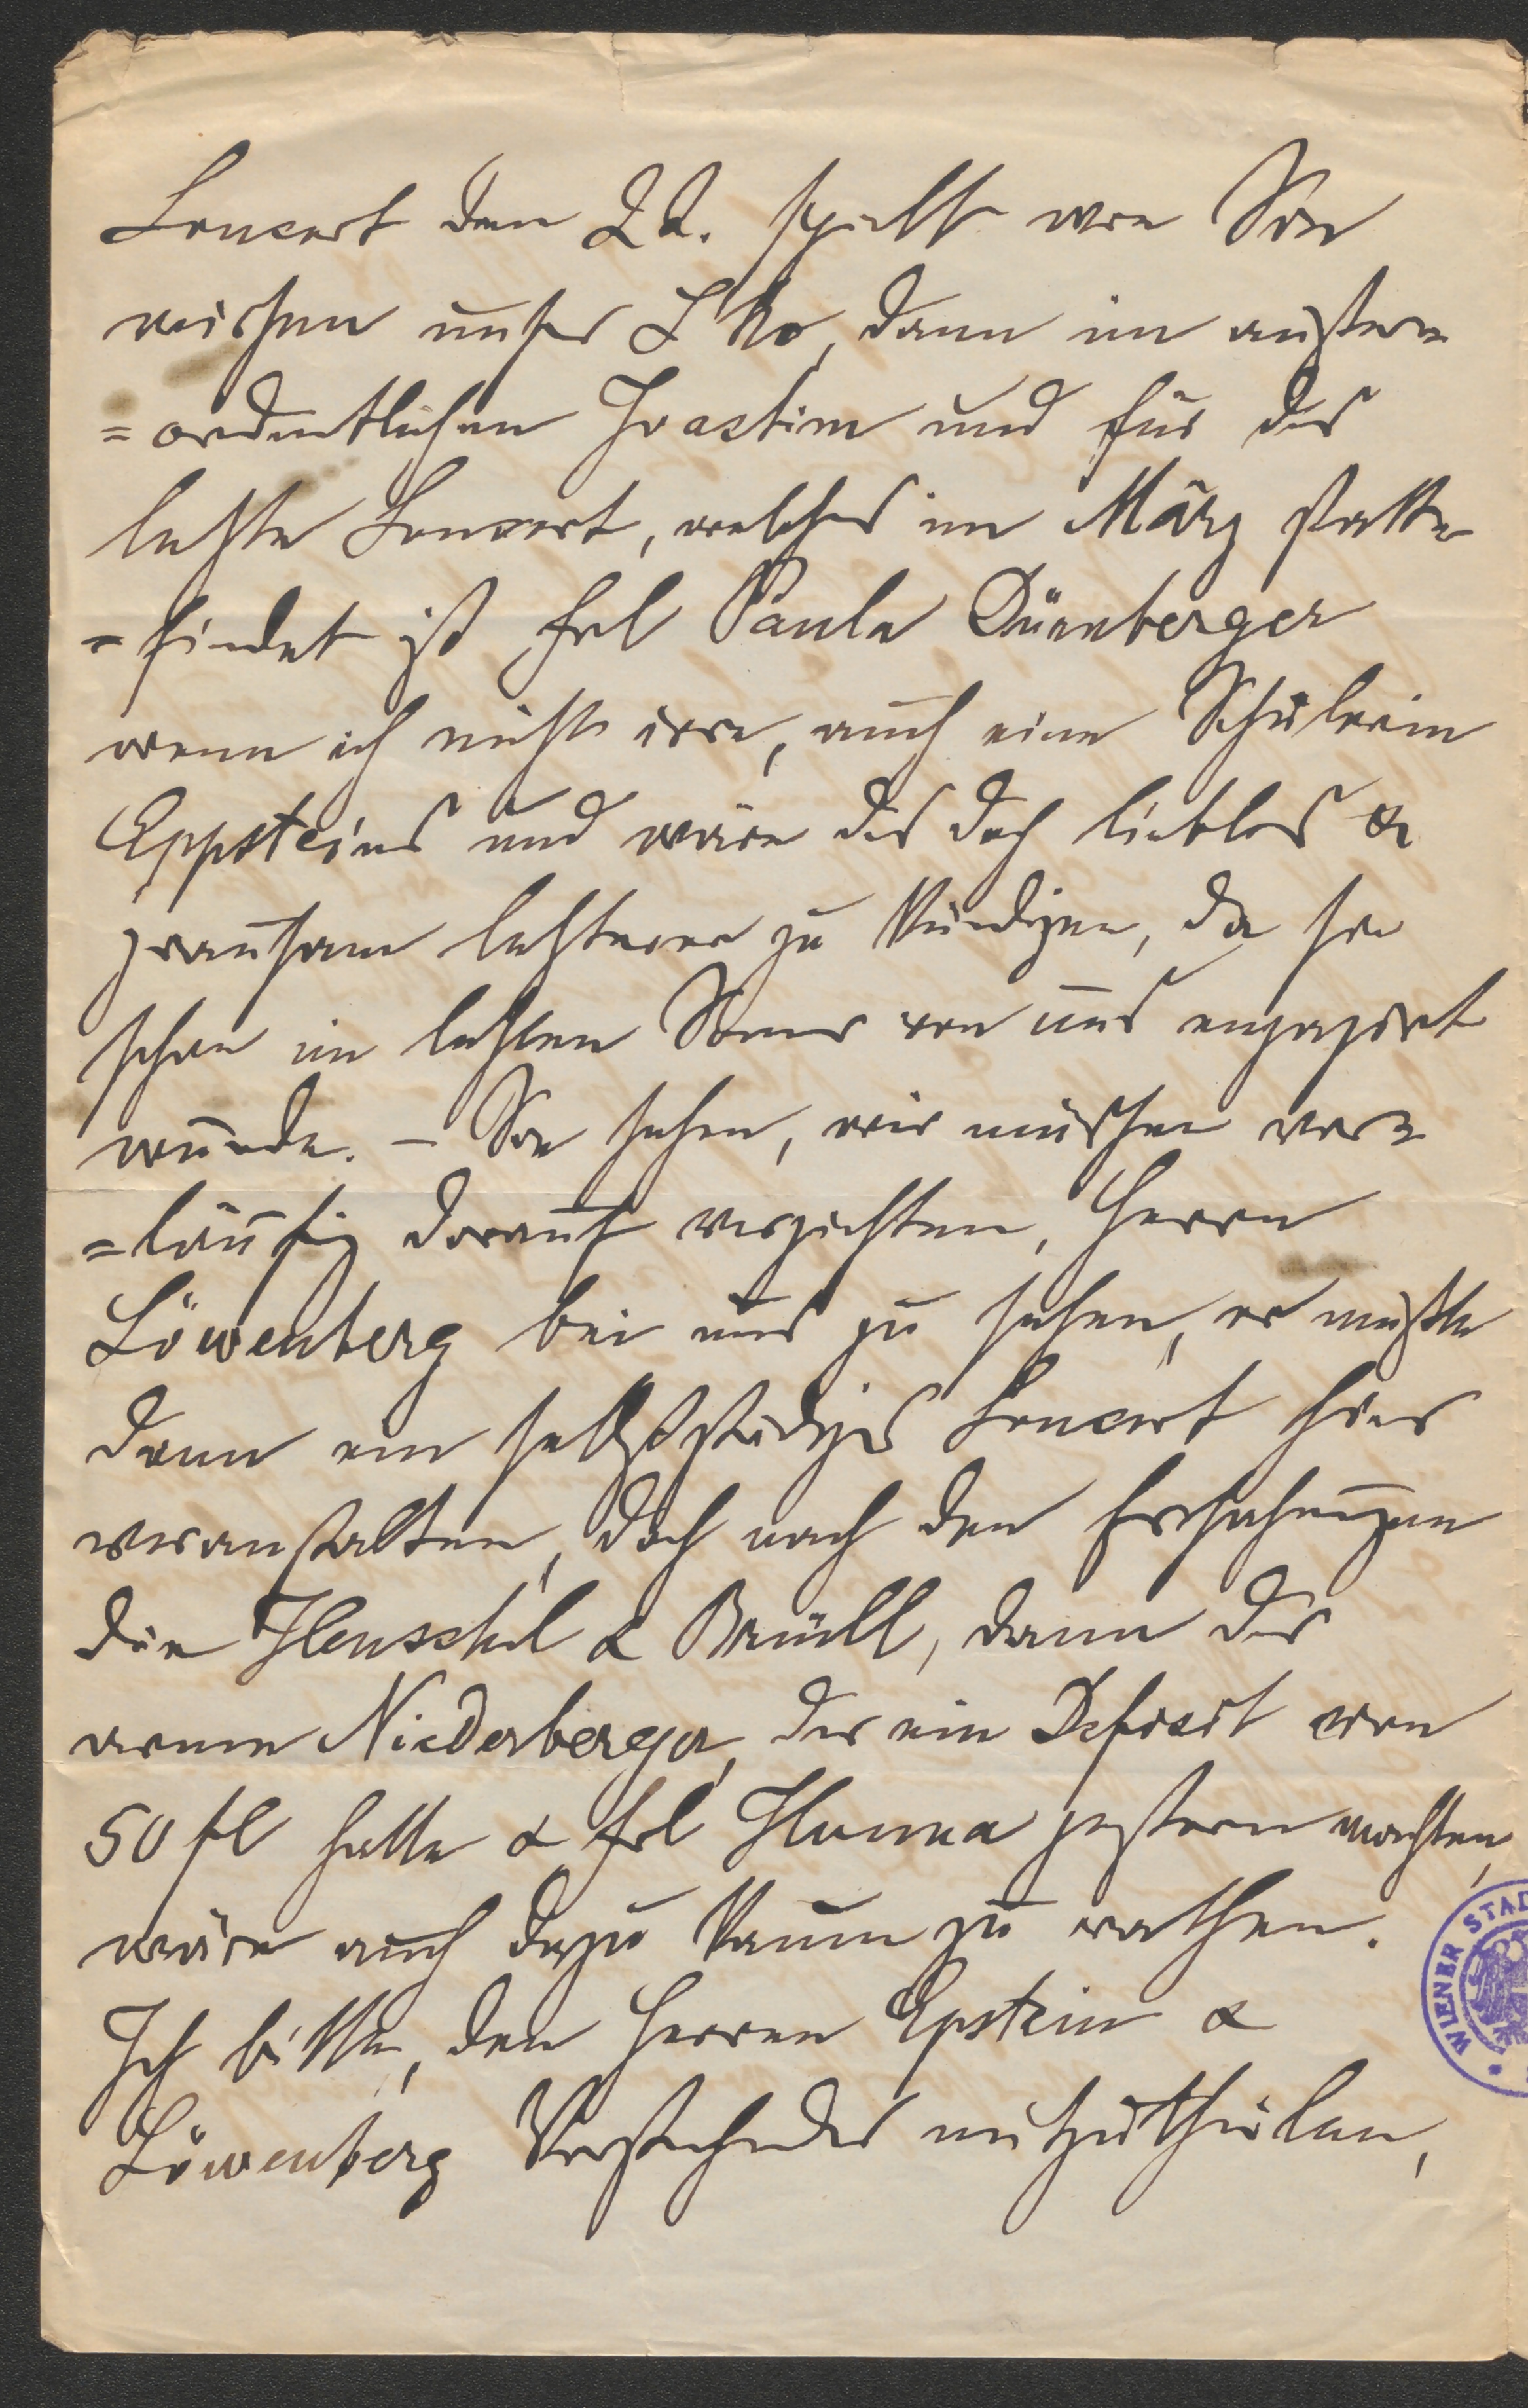 Concert den 22. spielt wie Sie
wissen unser L Ko, dann im außer=
=ordentlichen Joachim und für das
letzte Concert, welches im März statt=
=findet ist Frl Paula Dürrnberger
wenn ich nicht irre, auch eine Schülerin
Eppsteins und wäre das doch lieblos &
grausam letzterer zu kündigen, da sie
schon im letzten Somer von uns engagirt
wurde. – Sie sehen, wir müssen vor=
=läufig darauf verzichten, Herrn
Löwenberg bei uns zu sehen, er müßte
denn ein selbstständiges Concert hier
veranstalten, doch nach den Erfahrungen
die Henschel & Brüll, dann der
arme Niederberger, der ein Defizit von
50 fl hatte & Frl gestern machten,
wäre auch dazu kaum zu rathen.
Ich bitte, den Herren Epstein &
Löwenberg Vorstehendes mitzutheilen,
WIENER STAD